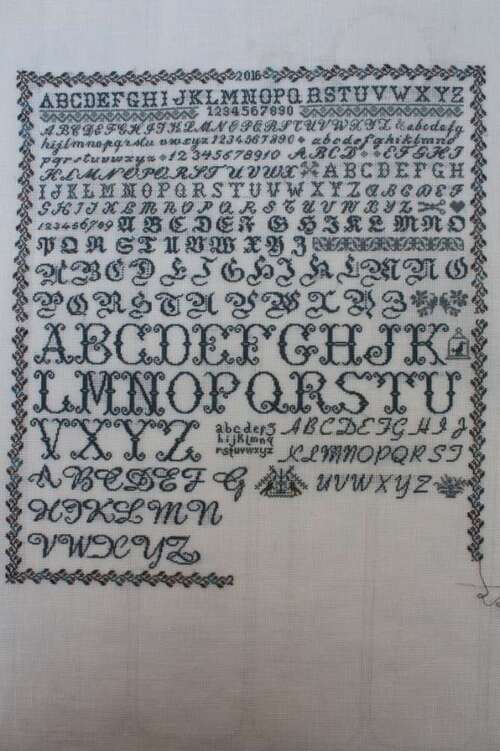 2016
ABCDEFGHIJKLMNOPQRSTUVWXYZ
1234567890
ABCDEFGHIJKLMNOPQRSTUVWXYZ abcdefg
hijklmnopqrstu vwxyz1234567890 abcdefghijklmno
pqrstuvwxyz 12345678910 ABCD EFGHIJ
KLMNOPQRSTUVWX ABCDEFGH
IJKLMNOPQRSTUVWXYZ ABCDEF
GHIJKLMNOPQRSTUVWXYZ
ABCDEFGHIKLMNO
PQRSTUVWXYZ
ABCDEFGHIKLMNO
PQRSTUVWXYZ
ABCDEFGHJK
LMNOPQRSTU
VXYZ abcdefg ABCDEFGHIJ
hijklmnq
rstuvwxyz KLMNOPQRST
ABCDEF G UVWXYZ
HIKLMN
VWXYZ